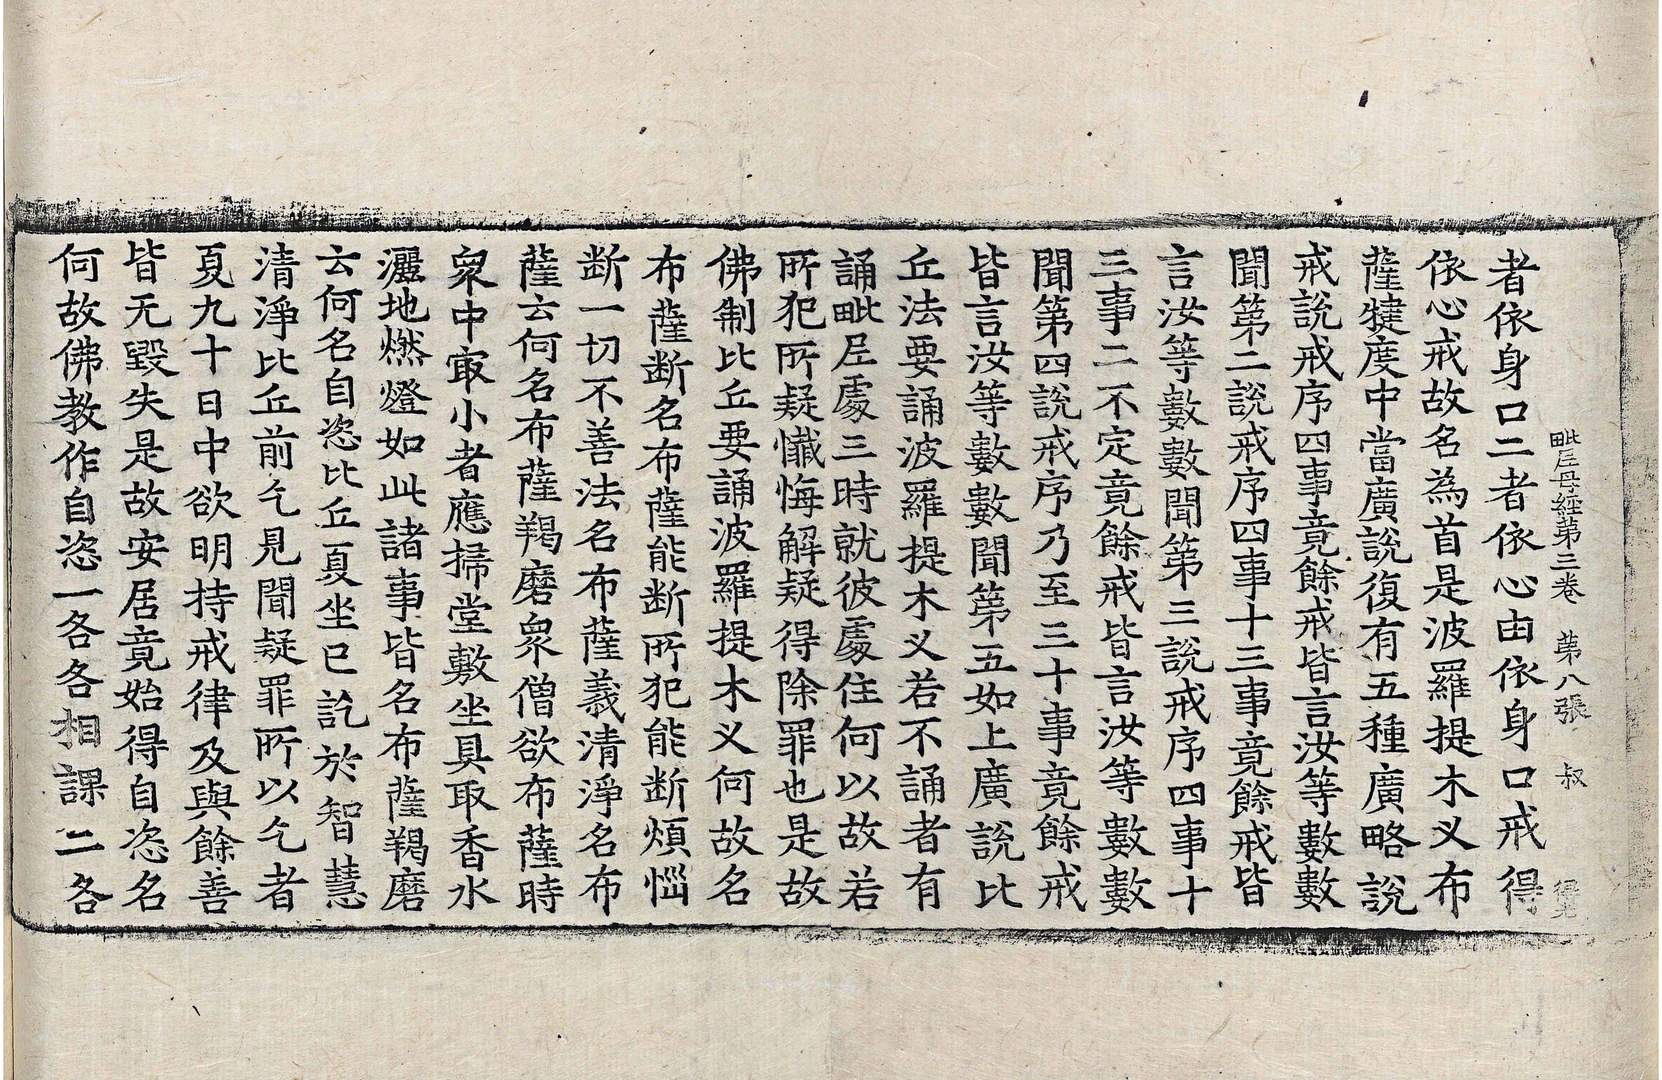 毗尼母經第三卷 第八張 叔
者依身口二者依心由依身口戒得
依心戒故名為首是波羅提木义布
薩犍度中當廣說復有五種廣略說
戒說戒序四事竟餘戒皆言汝等數數
聞第二說戒序四事十三事竟餘戒皆
言汝等數數聞第三說戒序四事十
三事二不定竟餘戒皆言汝等數數
聞第四說戒序乃至三十事竟餘戒
皆言汝等數數聞第五如上廣說比
丘法要誦波羅提木义若不誦者有
誦毗尼處三時就彼處住何以故若
所犯所疑懺悔解疑得除罪也是故
佛制比丘要誦波羅提木义何故名
布薩断名布薩能断所犯能断煩惱
断一切不善法名布薩義清淨名布
薩云何名布薩羯磨衆僧欲布薩時
衆中㝡小者應掃堂敷坐具取香水
灑地燃燈如此諸事皆名布薩羯磨
云何名自恣比丘夏坐已訖於智慧
清淨比丘前乞見聞疑罪所以乞者
夏九十日中欲明持戒律及與餘善
皆无毀失是故安居竟始得自恣名
何故佛教作自恣一各各相課二各